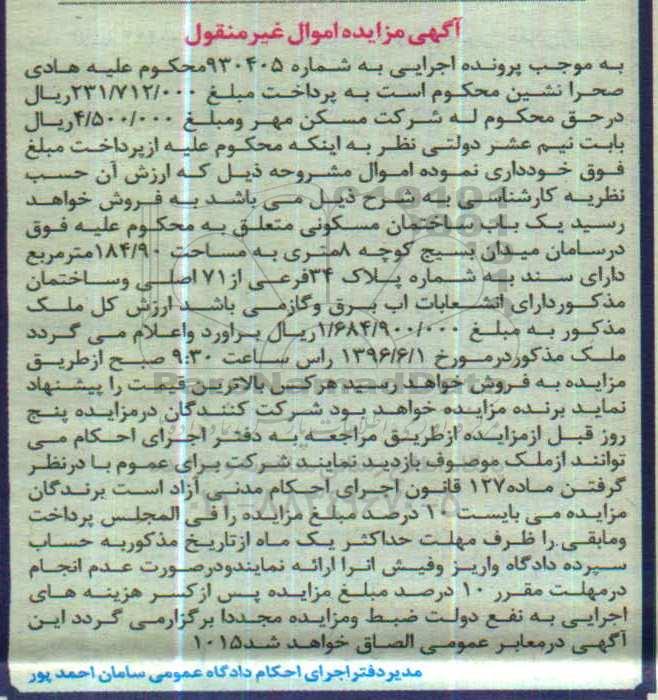 آگهی مزایده اموال غیرمنقول
به موجب پرونده اجرایی به شماره ۹۳۰۴۰۵محکوم علیه هادی
صحرا نشین محکوم است به پرداخت مبلغ ۲۳۱/۷۱۲/۰۰۰ریال
درحق محکوم له شرکت مسکن مهر ومبلغ ۴/۵۰۰/۰۰۰ریال
بابت نیم عشر دولتی نظر به اینکه محکوم علیه ازپرداخت مبلغ
فوق خودداری نموده اموال مشروحه ذیل که ارزش آن حسب
نظریه کارشناسی به شرح ذیل می باشد به فروش خواهد
رسید یک باب ساختمان مسکونی متعلق به محکوم علیه فوق
درسامان میدان بسیج کوچه ۸متری به مساحت ۱۸۴/۹۰مترمربع
دارای سند به شماره پلاک ۳۴فرعی از۷۱ اصلی وساختمان
مذکوردارای انشعابات اب برق وگازمی باشد ارزش کل ملک
مذکور به مبلغ ۱/۶۸۴/۹۰۰/۰۰۰ریال براورد واعلام می گردد
ملک مذکوردرمورخ ۱۳۹۶/۶/۱ راس ساعت ۹:۳۰ صبح ازطریق
مزایده به فروش خواهد رسید هرکس بالاترین قیمت را پیشنهاد
نماید برنده مزایده خواهد بود شرکت کنندگان درمزایده پنج
روز قبل ازمزایده ازطریق مراجعه به دفتر اجرای احکام می
توانند ازملک موصوف بازدید نمایند شرکت برای عموم با درنظر
گرفتن ماده۱۲۷ قانون اجرای احکام مدنی آزاد است برندگان
مزایده می بایست ۱۰ درصد مبلغ مزایده را فی المجلس پرداخت
ومابقی را ظرف مهلت حداکثر یک ماه ازتاریخ مذکوربه حساب
سپرده دادگاه واریز وفیش انرا ارائه نمایندودرصورت عدم انجام
درمهلت مقرر ۱۰ درصد مبلغ مزایده پس ازکسر هزینه های
اجرایی به نفع دولت ضبط ومزایده مجددا برگزارمی گردد این
آگهی درمعابر عمومی الصاق خواهد شد۱۰۱۵
مدیردفتراجرای احکام دادگاه عمومی سامان احمد پور
ParsNamadData